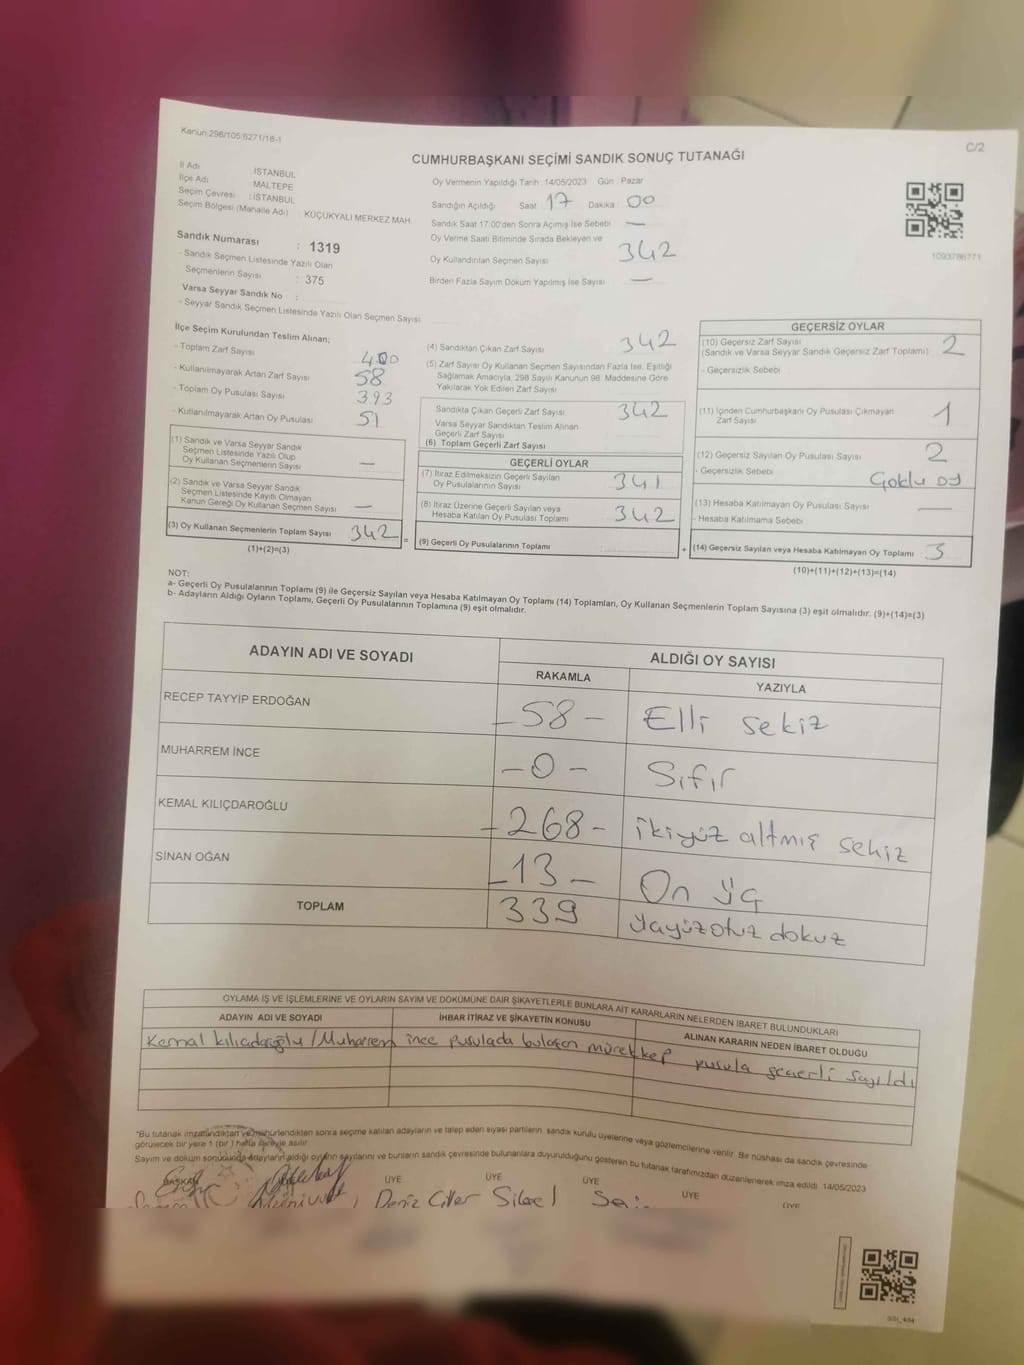 Kanun:298/105 6271/18-1
C/2
CUMHURBAŞKANI SEÇİMİ SANDIK SONUÇ TUTANAĞI
İl Adı : İSTANBUL
İlçe Adı : MALTEPE
Seçim Çevresi : İSTANBUL
Seçim Bölgesi (Mahalle Adı) : KÜÇÜKYALI MERKEZ MAH.
Sandık Numarası : 1319
- Sandık Seçmen Listesinde Yazılı Olan
Seçmenlerin Sayısı : 375
Varsa Seyyar Sandık No :
- Seyyar Sandık Seçmen Listesinde Yazılı Olan Seçmen Sayısı
Oy Vermenin Yapıldığı Tarih : 14/05/2023 Gün : Pazar
Sandığın Açıldığı Saat : 17 Dakika : 00
Sandık Saat 17:00'den Sonra Açılmış İse Sebebi —
Oy Verme Saati Bitiminde Sırada Bekleyen ve
Oy Kullandırılan Seçmen Sayısı 342
Birden Fazla Sayım Döküm Yapılmış İse Sayısı —
1093786771
İlçe Seçim Kurulundan Teslim Alınan;
- Toplam Zarf Sayısı 400
- Kullanılmayarak Artan Zarf Sayısı 58
- Toplam Oy Pusulası Sayısı 393
- Kullanılmayarak Artan Oy Pusulası 51
(1) Sandık ve Varsa Seyyar Sandık
Seçmen Listesinde Yazılı Olup
Oy Kullanan Seçmenlerin Sayısı —
(2) Sandık ve Varsa Seyyar Sandık
Seçmen Listesinde Kayıtlı Olmayan
Kanun Gereği Oy Kullanan Seçmen Sayısı —
(3) Oy Kullanan Seçmenlerin Toplam Sayısı 342 =
(1)+(2)=(3)
(4) Sandıktan Çıkan Zarf Sayısı 342
(5) Zarf Sayısı Oy Kullanan Seçmen Sayısından Fazla İse, Eşitliği
Sağlamak Amacıyla, 298 Sayılı Kanunun 98. Maddesine Göre
Yakılarak Yok Edilen Zarf Sayısı
Sandıkta Çıkan Geçerli Zarf Sayısı 342
Varsa Seyyar Sandıktan Teslim Alınan
Geçerli Zarf Sayısı
(6) Toplam Geçerli Zarf Sayısı
GEÇERLİ OYLAR
(7) İtiraz Edilmeksizin Geçerli Sayılan
Oy Pusulalarının Sayısı 341
(8) İtiraz Üzerine Geçerli Sayılan veya
Hesaba Katılan Oy Pusulası Toplamı 342
(9) Geçerli Oy Pusulalarının Toplamı +
GEÇERSİZ OYLAR
(10) Geçersiz Zarf Sayısı
(Sandık ve Varsa Seyyar Sandık Geçersiz Zarf Toplamı) 2
- Geçersizlik Sebebi
(11) İçinden Cumhurbaşkanı Oy Pusulası Çıkmayan
Zarf Sayısı 1
(12) Geçersiz Sayılan Oy Pusulası Sayısı 2
- Geçersizlik Sebebi Çoklu oy
(13) Hesaba Katılmayan Oy Pusulası Sayısı —
- Hesaba Katılmama Sebebi
(14) Geçersiz Sayılan veya Hesaba Katılmayan Oy Toplamı : 3
(10)+(11)+(12)+(13)=(14)
NOT:
a- Geçerli Oy Pusulalarının Toplamı (9) ile Geçersiz Sayılan veya Hesaba Katılmayan Oy Toplamı (14) Toplamları, Oy Kullanan Seçmenlerin Toplam Sayısına (3) eşit olmalıdır. (9)+(14)=(3)
b- Adayların Aldığı Oyların Toplamı, Geçerli Oy Pusulalarının Toplamına (9) eşit olmalıdır.
ADAYIN ADI VE SOYADI
ALDIĞI OY SAYISI
RAKAMLA YAZIYLA
RECEP TAYYİP ERDOĞAN - 58 - Elli sekiz
MUHARREM İNCE - 0 - Sıfır
KEMAL KILIÇDAROĞLU - 268 - ikiyüz altmış sekiz
SİNAN OĞAN - 13 - On üç
TOPLAM 339 üçyüzotuz dokuz
OYLAMA İŞ VE İŞLEMLERİNE VE OYLARIN SAYIM VE DÖKÜMÜNE DAİR ŞİKAYETLERLE BUNLARA AİT KARARLARIN NELERDEN İBARET BULUNDUKLARI
ADAYIN ADI VE SOYADI İHBAR İTİRAZ VE ŞİKAYETİN KONUSU ALINAN KARARIN NEDEN İBARET OLDUĞU
Kemal kılıçdaroğlu / Muharrem ince pusulada bulaşan mürekkep pusula geçerli sayıldı
*Bu tutanak imzalandıktan ve mühürlendikten sonra seçime katılan adayların ve talep eden siyasi partilerin sandık kurulu üyelerine veya gözlemcilerine verilir. Bir nüshası da sandık çevresinde
görülecek bir yere 1 (bir) hafta süreyle asılır.
Sayım ve döküm sonucunda adayların aldığı oyların sayılarını ve bunların sandık çevresinde bulunanlara duyurulduğunu gösteren bu tutanak tarafımızdan düzenlenerek imza edildi. 14/05/2023
BAŞKAN ÜYE ÜYE ÜYE ÜYE ÜYE
Deniz Sibel